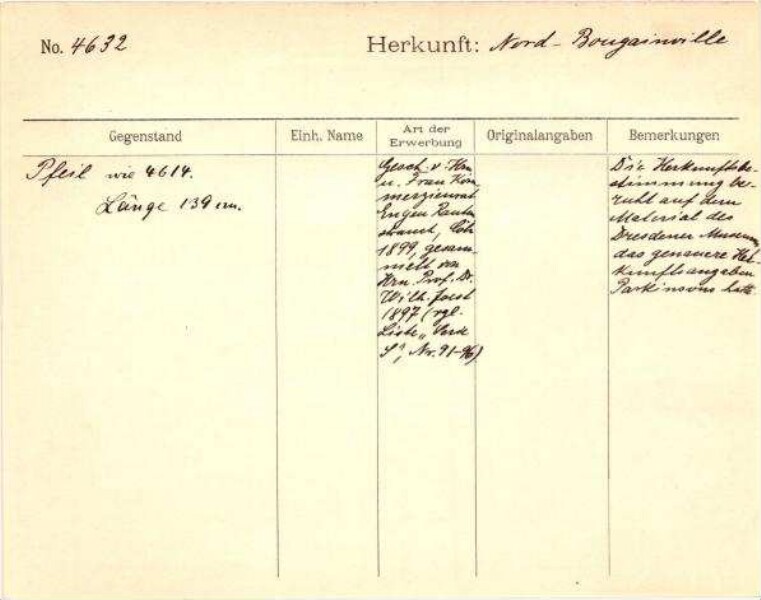 No. 4632 Herkunft: Nord-Bougainville
Gegenstand
Einh. Name
Art der
Erwerbung
Originalangaben
Bemerkungen
Pfeil wie 4614.
Länge 139 cm.
Gesch. v. Hrn
u. Frau Kom
merzienrat
Eugen Rauten
strauch, Cöln
1899, gesam
melt von
Hrn. Prof. Dr.
Wilh. Joest
1897 (vgl.
Liste „
S", Nr. 91-96)
Die Herkunftsbe-
stimmung be-
ruht auf dem
Material des
Dresdener Museums,
das genauere Her-
kunftsangaben
Parkinsons hatte.